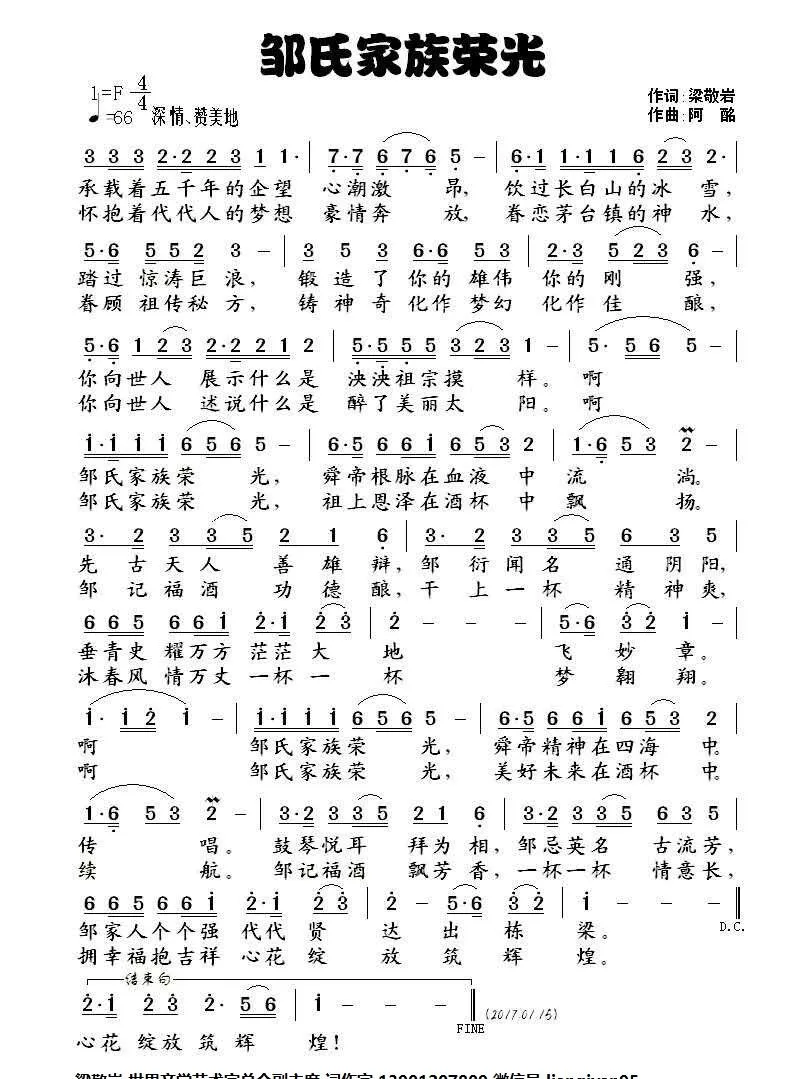 邹氏家族荣光
1=F 4/4
♩=66 深情、赞美地
作词:梁敬岩
作曲:阿 酩
3 3 3 2·2 2 3 1 1· | 7·7 6 7 6 5 - | 6·1 1·1 1 6 2 3 2· |
承载着五千年的企望 心潮激 昂, 饮过长白山的冰 雪,
怀抱着代代人的梦想 豪情奔 放, 眷恋茅台镇的神 水,
5·6 5 5 2 3 - | 3 5 3 6·6 5 3 | 2·3 5 2 3 6 - |
踏过 惊涛巨 浪, 锻 造 了 你的 雄伟 你的 刚 强,
眷顾 祖传秘 方, 铸 神 奇 化作 梦幻 化作 佳 酿,
5·6 1 2 3 2·2 2 1 2 | 5·5 5 5 3 2 3 1 - | 5· 5 6 5 - |
你向世人 展示什么是 泱泱祖宗摸 样。 啊
你向世人 述说什么是 醉了美丽太 阳。 啊
1·1 1 1 6 5 6 5 - | 6·5 6 6 1 6 5 3 2 | 1·6 5 3 2 - |
邹氏家族荣 光, 舜帝根脉在血液 中 流 淌。
邹氏家族荣 光, 祖上恩泽在酒杯 中 飘 扬。
3· 2 3 3 5 2 1 6 | 3· 2 3 3 5 6 3 5 |
先 古 天 人 善 雄 辩, 邹 衍 闻 名 通 阴 阳,
邹 记 福 酒 功 德 酿, 干 上 一 杯 精 神 爽,
6 6 5 6 6 1 2·1 2 3 | 2 - - - | 5·6 3 2 1 - |
垂青史 耀万方 茫茫 大 地 飞 妙 章。
沐春风 情万丈 一杯 一 杯 梦 翱 翔。
1· 1 2 1 - | 1·1 1 1 6 5 6 5 - | 6·5 6 6 1 6 5 3 2 |
啊 邹氏家族荣 光, 舜帝精神在四海 中。
啊 邹氏家族荣 光, 美好未来在酒杯 中。
1·6 5 3 2 - | 3·2 3 3 5 2 1 6 | 3·2 3 3 5 6 3 5 |
传 唱。 鼓琴悦耳 拜为 相, 邹忌英名 古流芳,
续 航。 邹记福酒 飘芳 香, 一杯一杯 情意长,
6 6 5 6 6 1 2·1 2 3 | 2· - 5·6 3 2 | 1 - - - ‖
D.C.
邹家人个个强 代代 贤 达 出 栋 梁。
拥幸福抱吉祥 心花 绽 放 筑 辉 煌。
结束句
2·1 2 3 2· 5 6 | 1 - - ‖ (2017.01.15)
FINE
心花 绽放 筑 辉 煌!